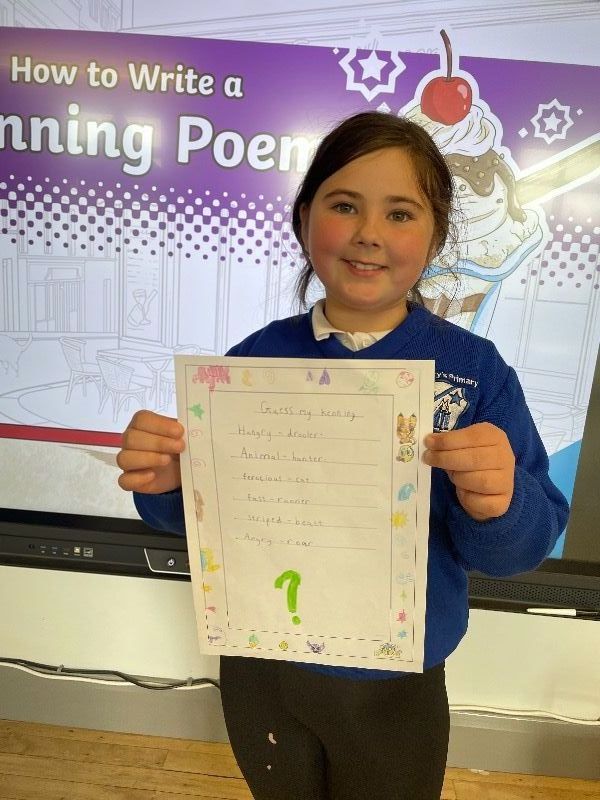 How to Write a
nning Poem
y's Primary
Guess my kenning
Hungry - drooler
Animal - hunter
ferocious - cat
fast - runner
striped - beast
Angry - roar
?